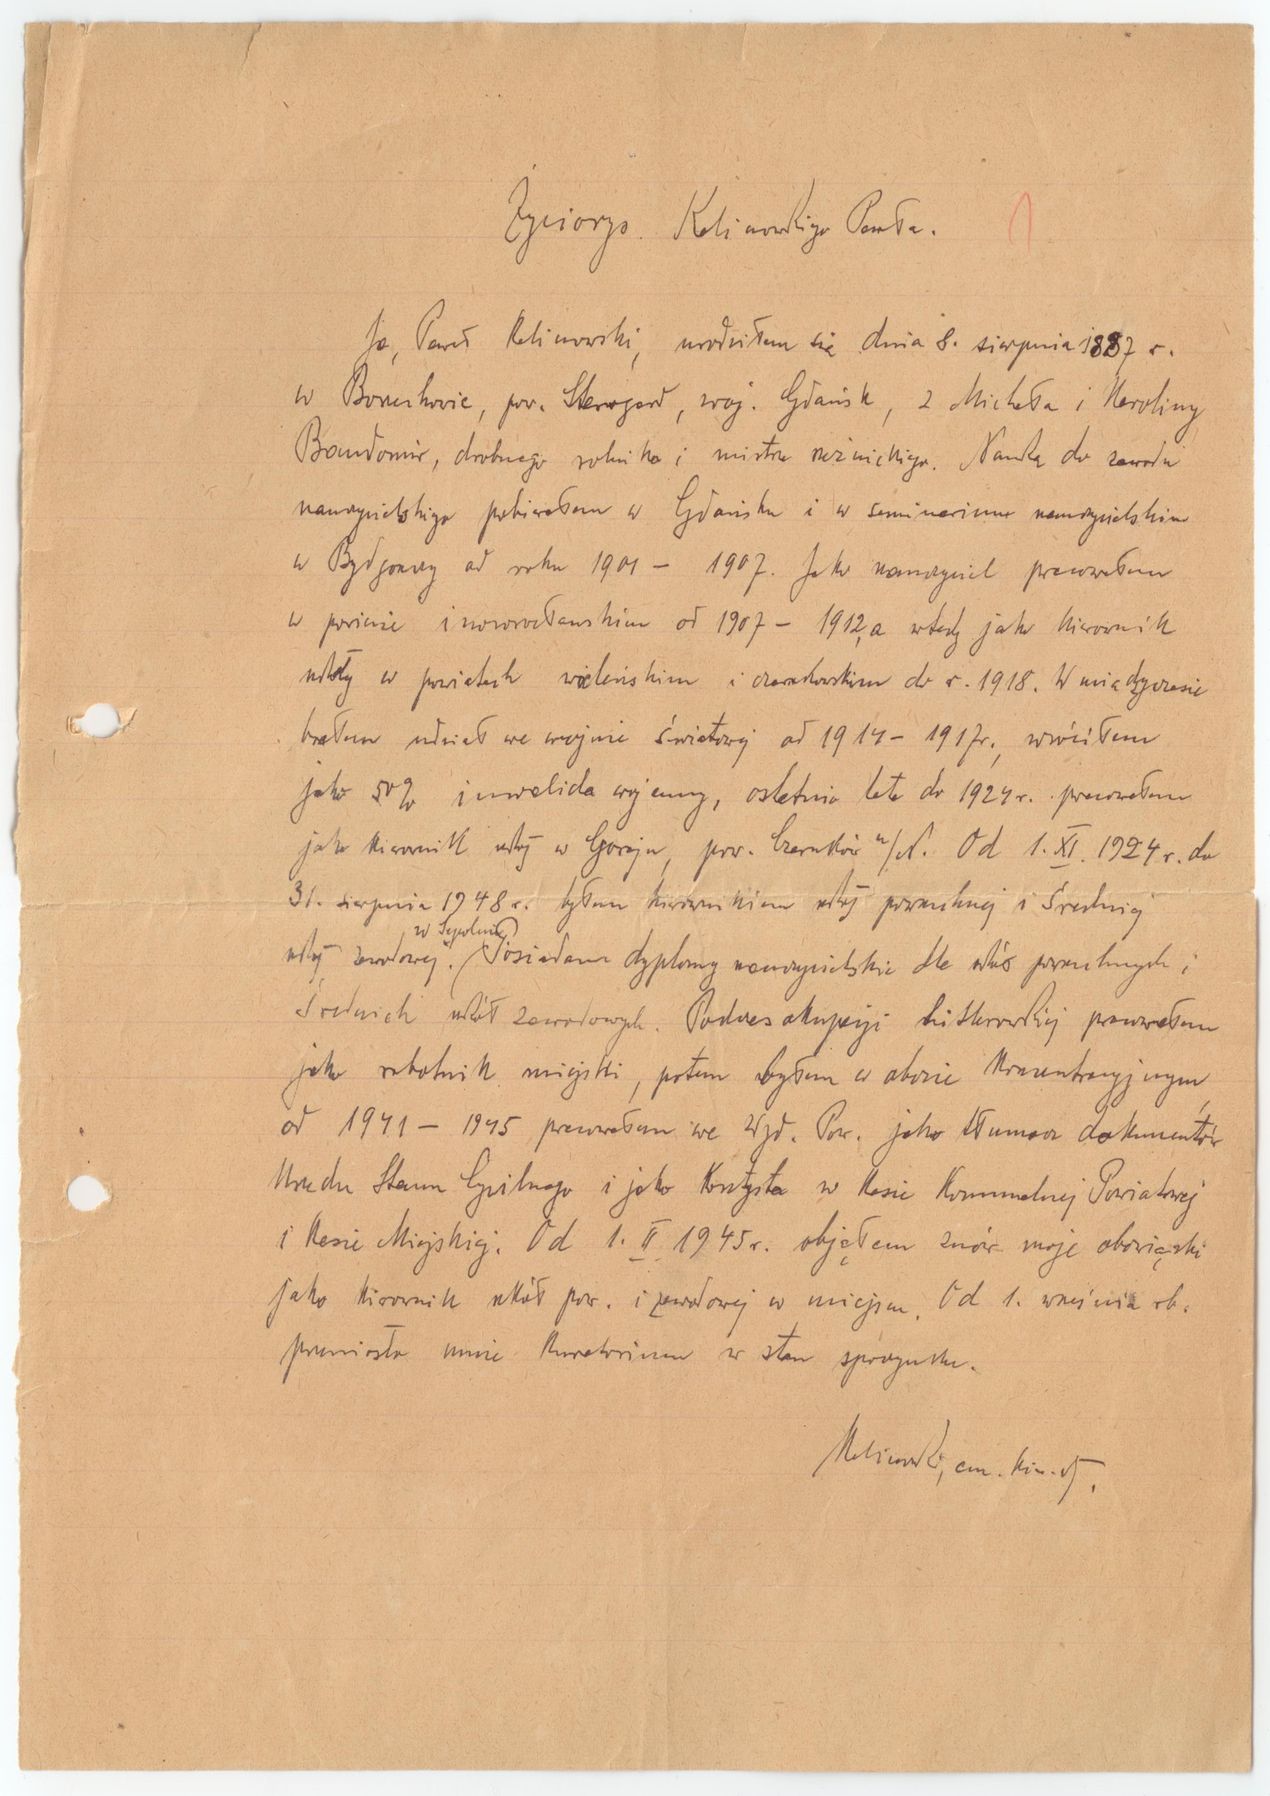 Życiorys Kalinowskiego Pawła.
Ja, Paweł Kalinowski, urodziłem się dnia 8. sierpnia 1887 r.
w Borzechowie, pow. Starogard, woj. Gdańsk, z Michała i Karoliny
drobnego rolnika i mistrza rzeźnickiego. Naukę do zawodu
nauczycielskiego pobierałem w Gdańsku i w seminarium nauczycielskim
w Bydgoszczy od roku 1901 – 1907. Jako nauczyciel pracowałem
w powiecie inowrocławskim od 1907 – 1912, a wtedy jako kierownik
szkoły w powiatach wieleńskim i czarnkowskim do r. 1918. W międzyczasie
brałem udział we wojnie światowej od 1914 – 1917 r., wróciłem
jako 50% inwalida wojenny, ostatnie lata do 1924 r. pracowałem
jako kierownik szkoły w Goraju, pow. Czarnków n/N. Od 1. XI. 1924 r. do
31. sierpnia 1948 r. byłem kierownikiem szkoły powszechnej i średniej
szkoły zawodowej w Sępolnie. Posiadam dyplomy nauczycielskie dla szkół powszechnych i
średnich szkół zawodowych. Podczas okupacji hitlerowskiej pracowałem
jako robotnik miejski, potem byłem w obozie koncentracyjnym,
od 1941 – 1945 pracowałem we Wyd. Pow. jako tłumacz dokumentów
Urzędu Stanu Cywilnego i jako kontysta w Kasie Komunalnej Powiatowej
i Kasie Miejskiej. Od 1. II. 1945 r. objąłem znów moje obowiązki
jako kierownik szkół pow. i zawodowej w miejscu. Od 1. września rb.
przeniosło mnie Kuratorium w stan spoczynku.
Kalinowski, em. kier. szk.